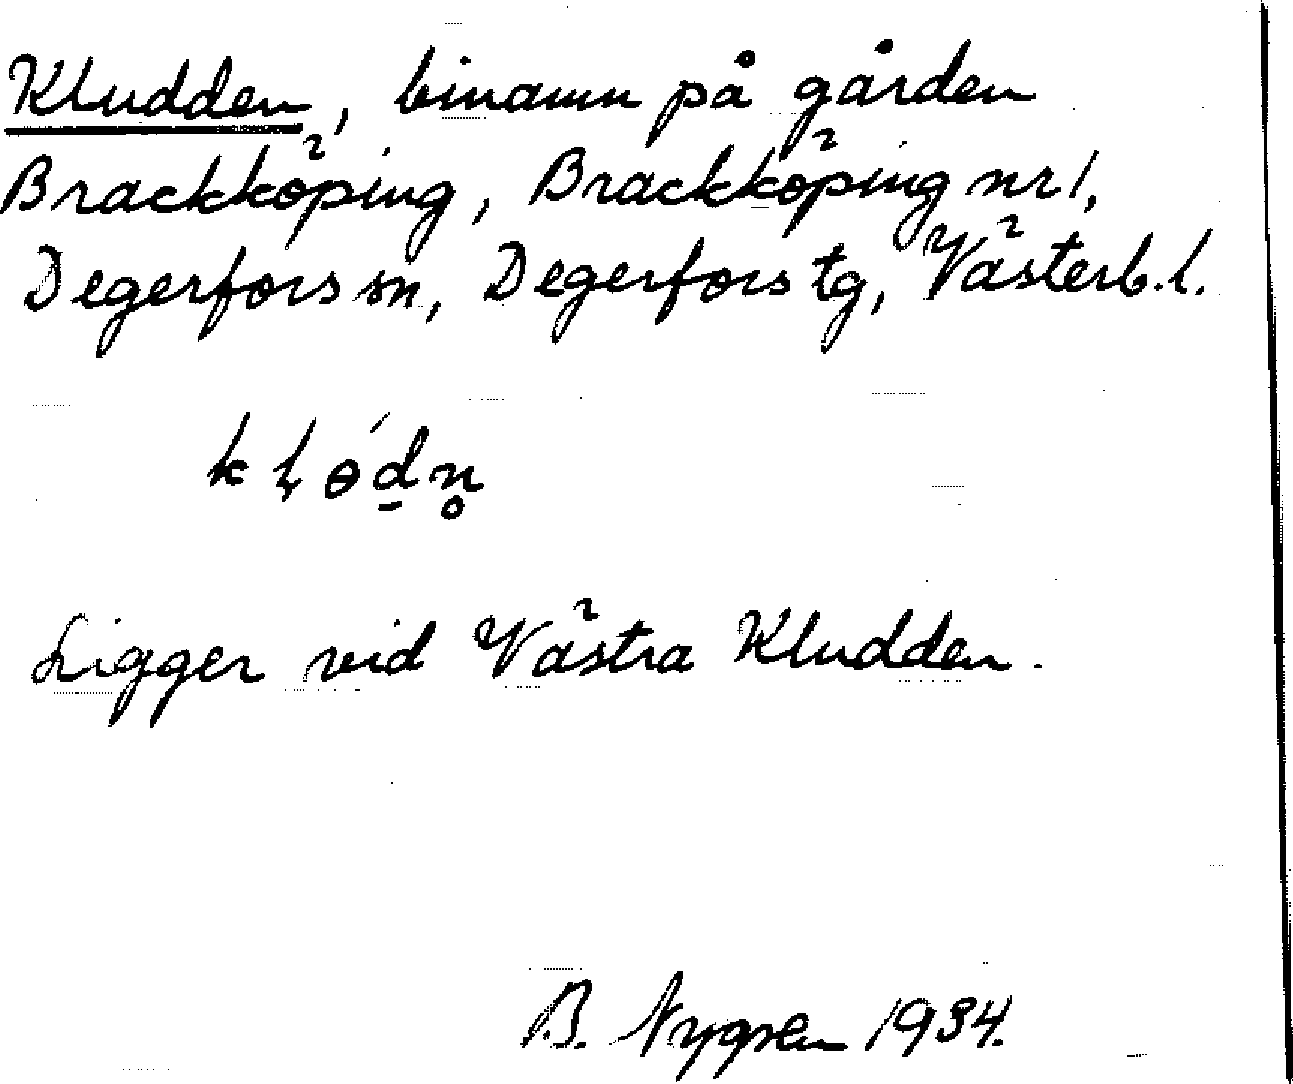 Kludden, binamn på gården
Brackköping, Brackköping nr 1,
Degerfors sn, Degerfors tg, Västerb.l.
kɭɵ́d̠n̥
Ligger vid Västra Kludden.
B. Nygren 1934.